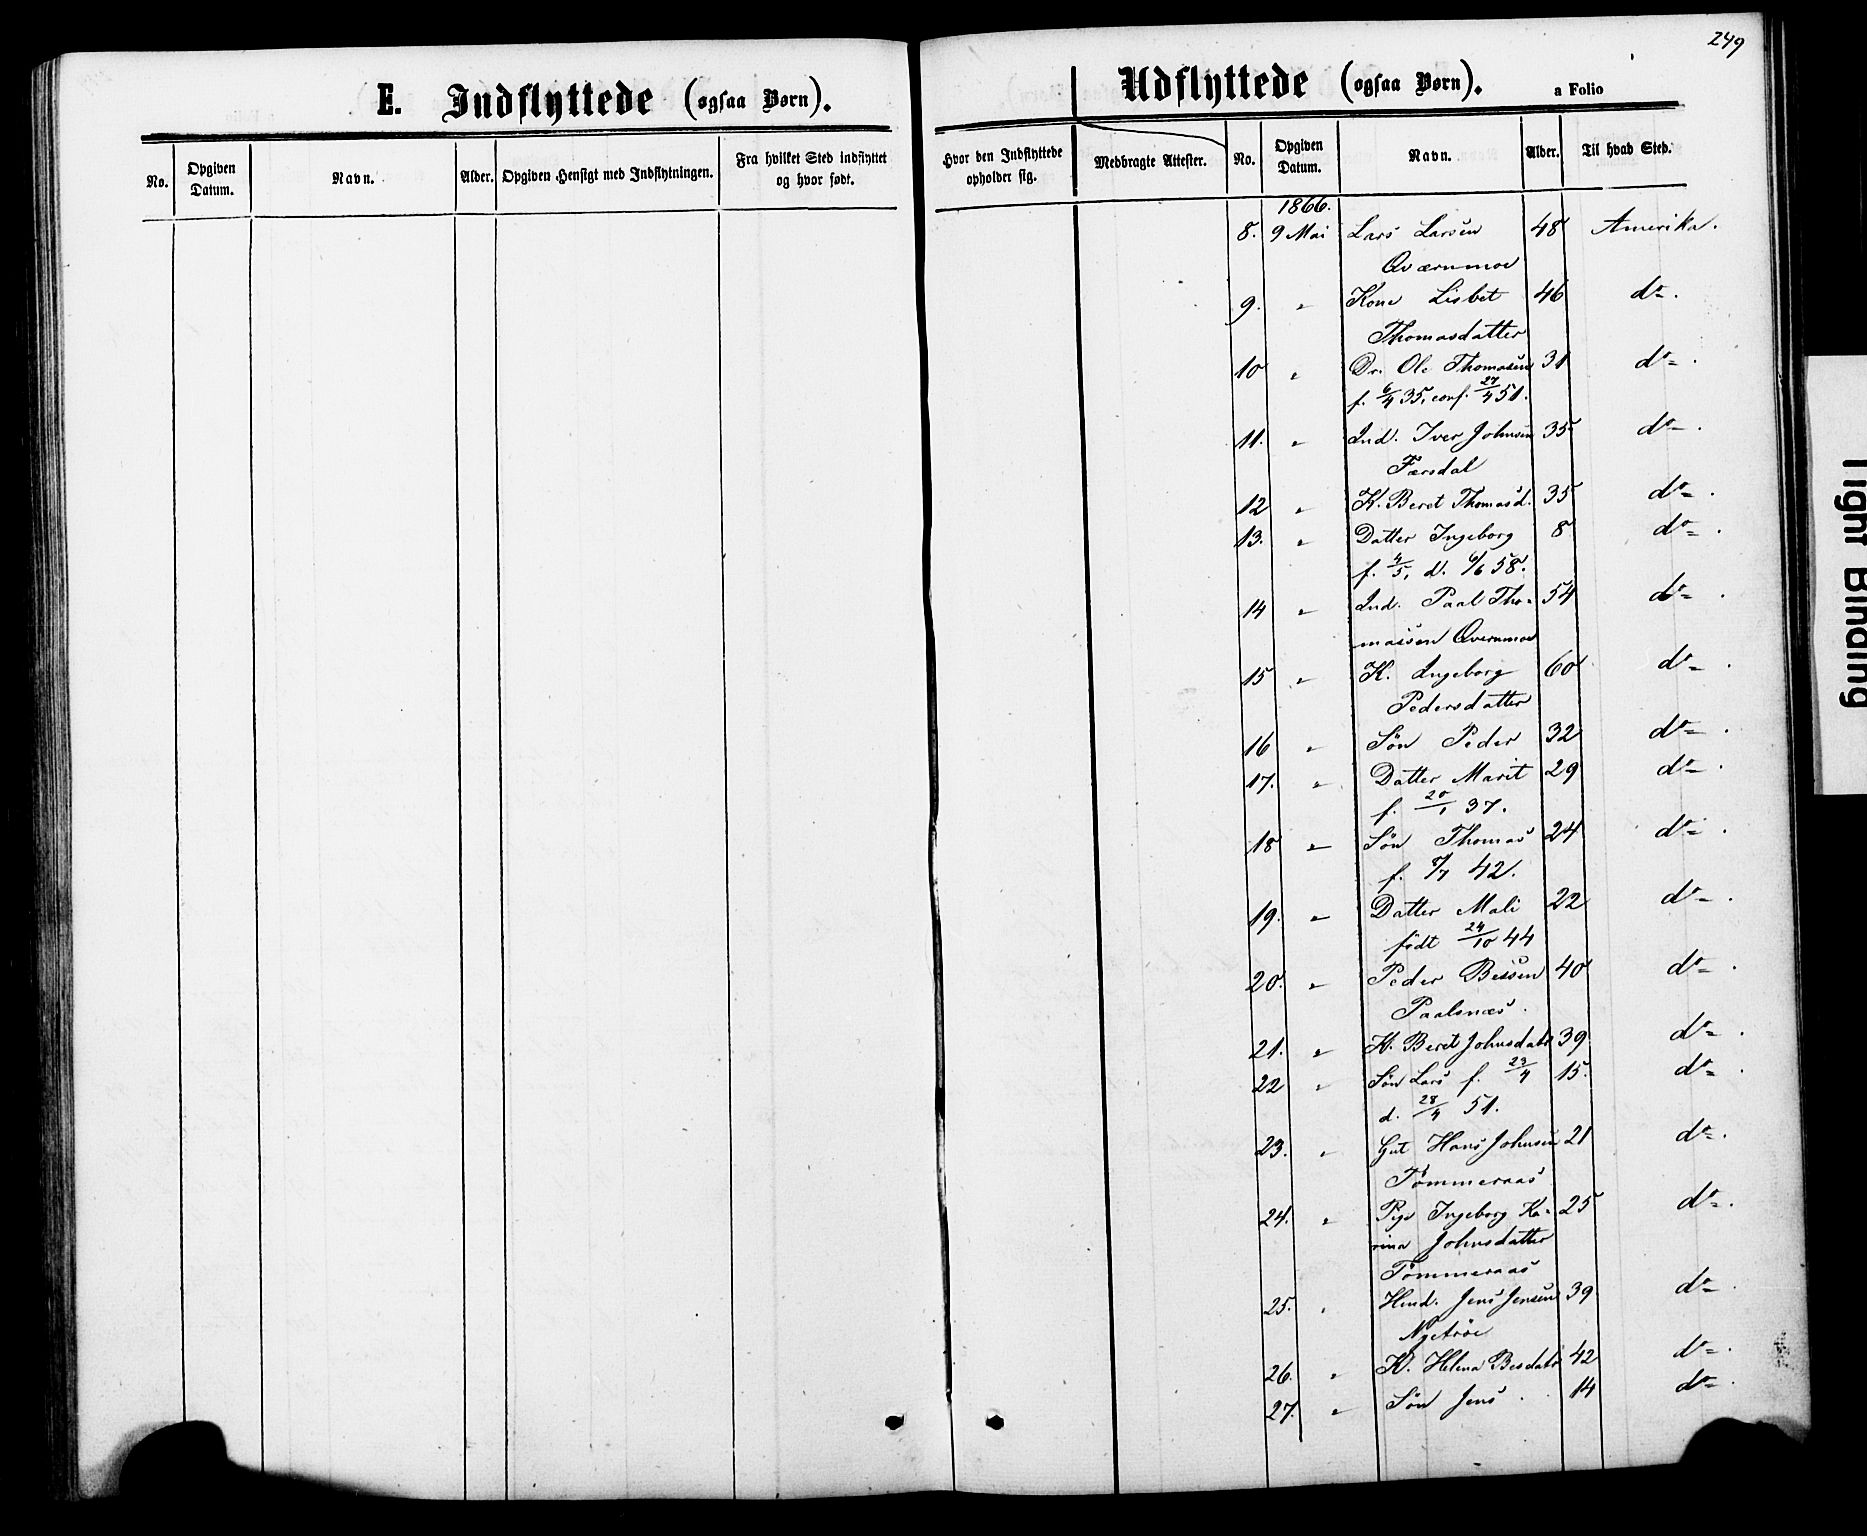 249
E. Indflyttede (ogsaa Børn).
No. Opgiven Datum. Navn. Alder. Opgiven Hensigt med Indflytningen. Fra hvilket Sted indflyttet og hvor født.
Udflyttede (ogsaa Børn). a Folio
Hvor den Indflyttede opholder sig. Medbragte Attester. No. Opgiven Datum. Navn. Alder. Til hvad Sted.
1866.
8. 9 Mai Lars Larsen 48 Amerika.
Qværnmoe
9. " Kone Lisbet 46 do.
Thomasdatter
10 " Dr. Ole Thomasen 31 do.
f. 6/4 35, conf. 27/4 51.
11. " Ind. Iver Johnsen 35 do.
Færsdal
12 " K. Beret Thomasd. 35 do.
13. " Datter Ingeborg 8 do.
f. 4/5, d. 6/6 58.
14 " Ind. Paal Tho- 54 do.
massen Qvernmoe
15 " K. Ingeborg 60 do.
Pedersdatter
16 " Søn Peder 32 do.
17. " Datter Marit 29 do.
f. 20/1 37.
18 " Søn Thomas 24 do.
f. 7/7 42.
19. " Datter Mali 22 do.
født 24/10 44
20. " Peder Bessen 40 do.
Paalsnæs.
21. " K. Beret Johnsdatr 39 do.
22 " Søn Lars f. 23/4 15. do.
d. 28/4 51.
23. " Gut Hans Johnsen 21 do.
Tømmeraas
24. " Pige Ingeborg Ka- 25 do.
rina Johnsdatter
Tømmeraas
25. " Huud. Jens Jensen 39 do.
Nyetrøe
26. " K. Helena Besdatr 42 do.
27. " Søn Jens. 14 do.
Tight Binding